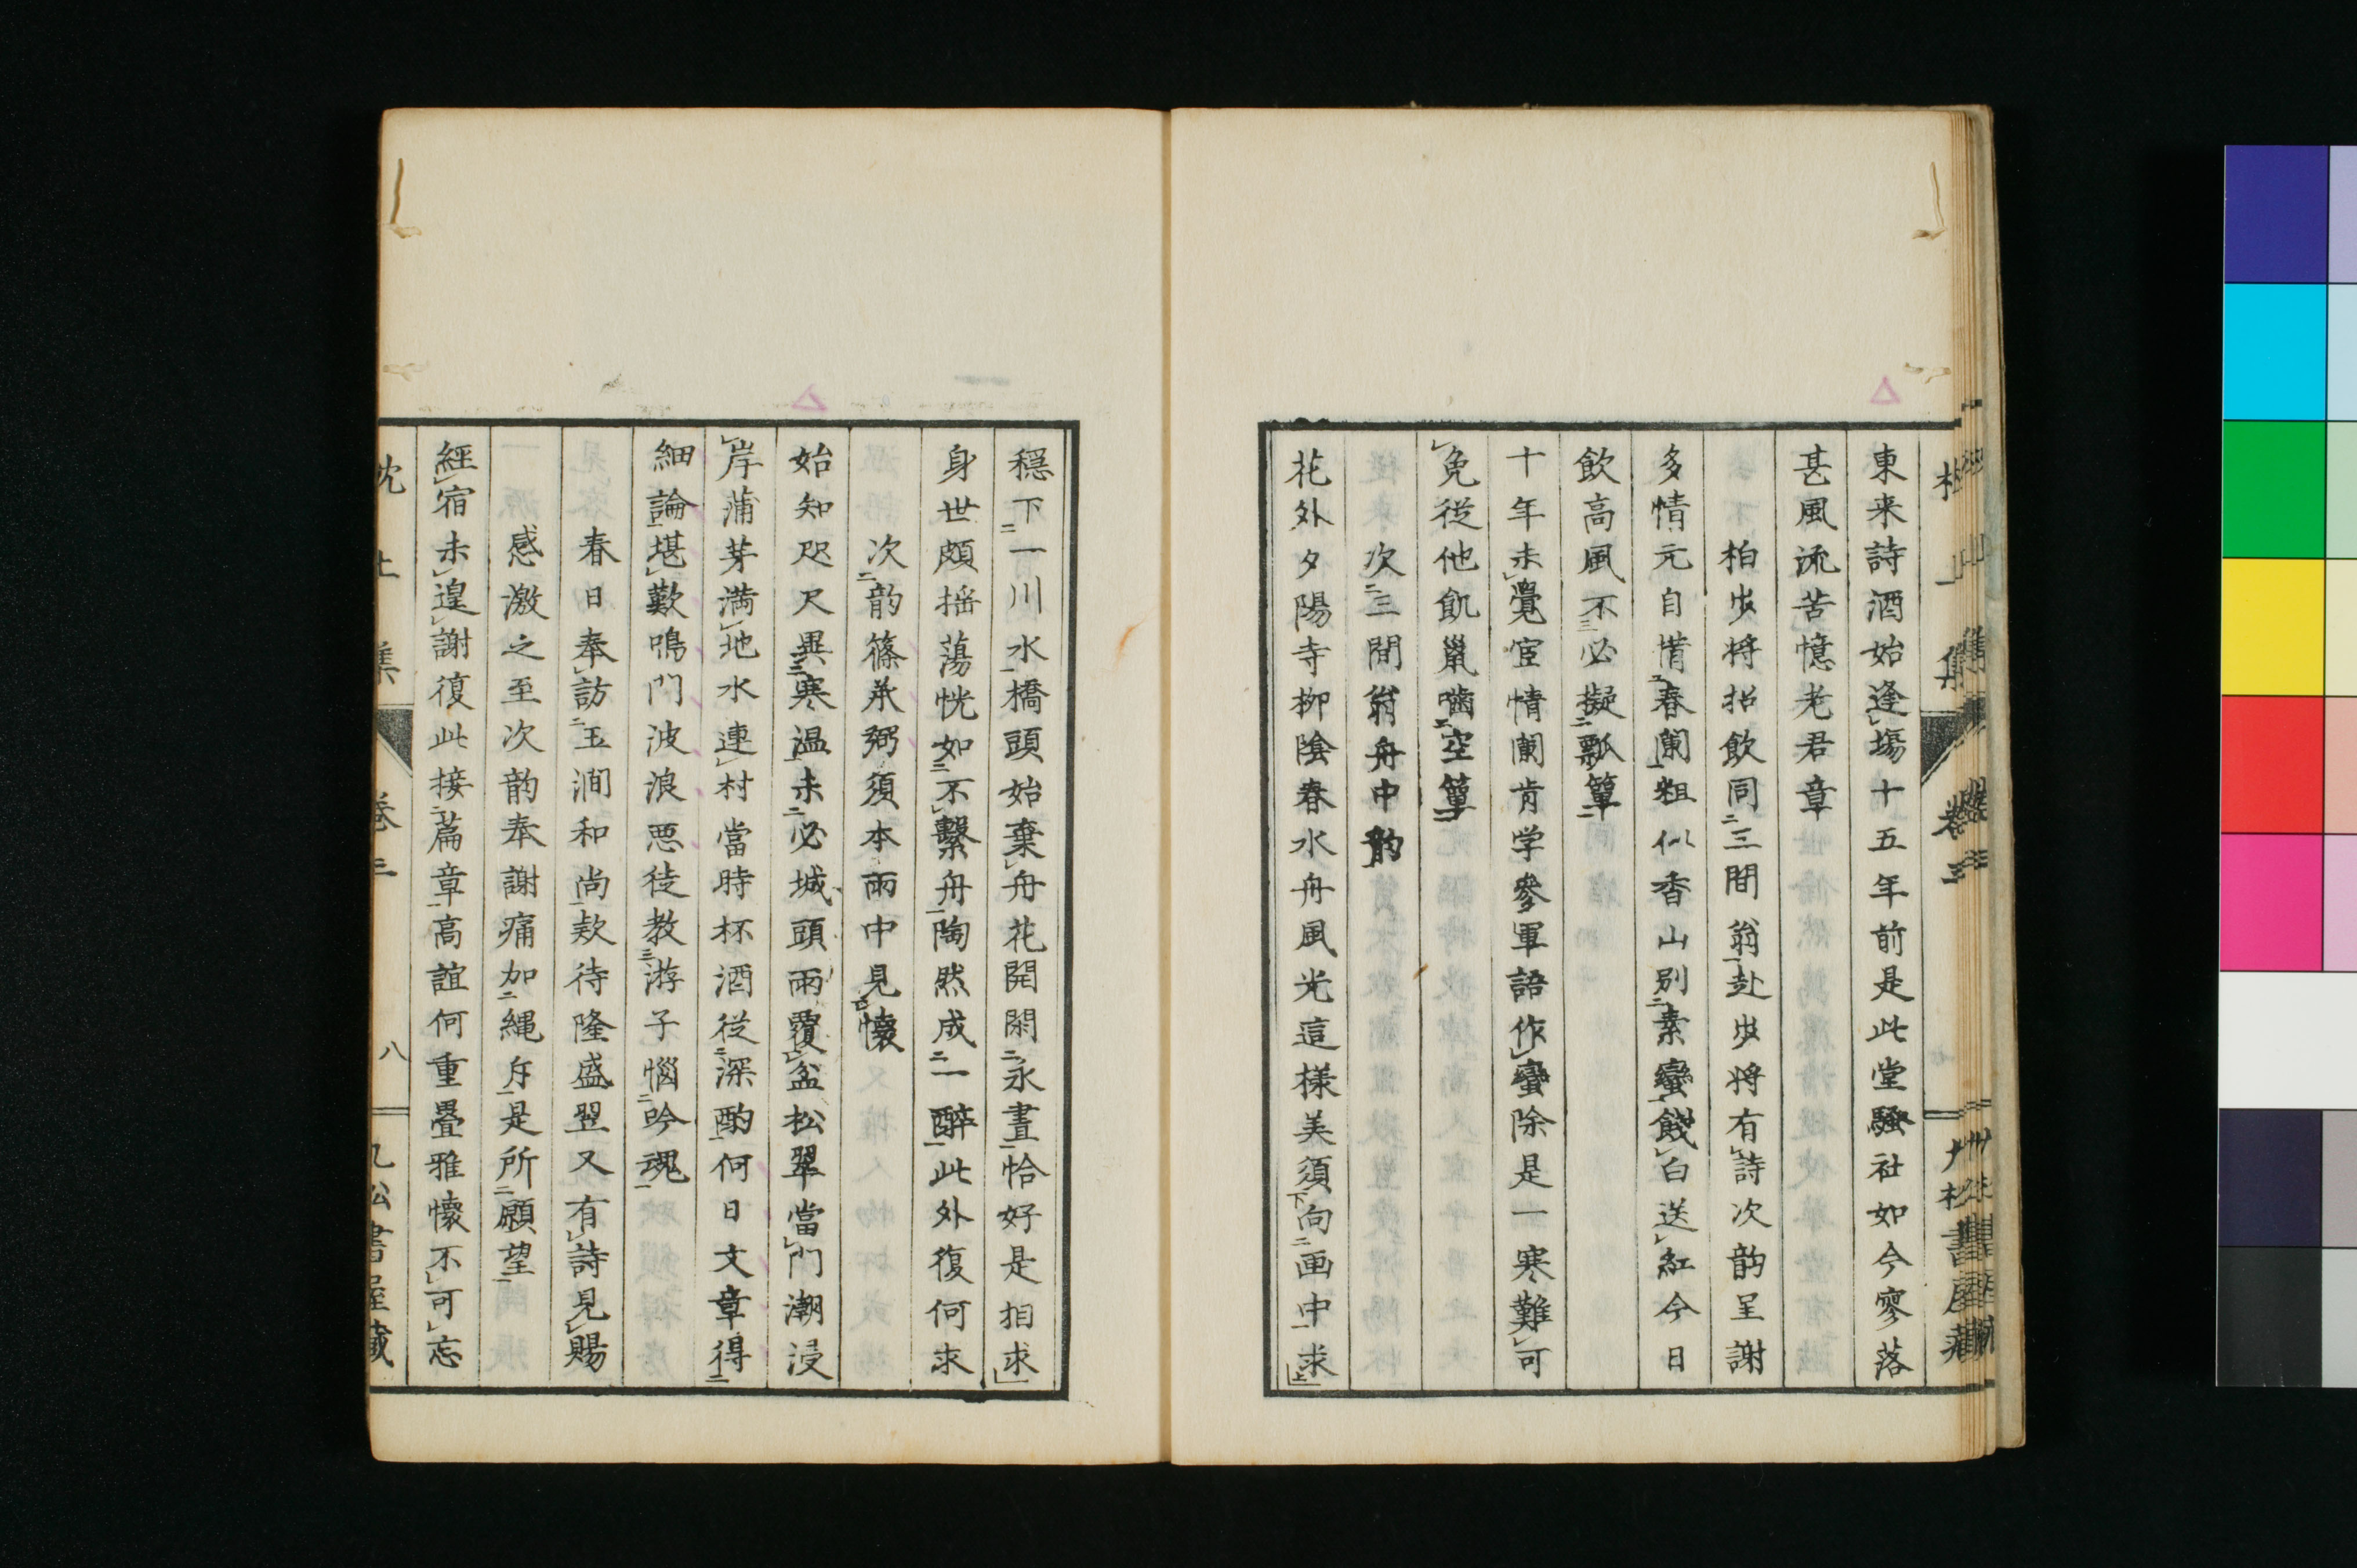 東来詩酒始逢塲十五年前是此堂騷社如今寥落
甚風流苦憶老君章
柏歩将招飲同三間翁赴歩将有詩次韵呈謝
多情元自惜春闌粗似香山別素蠻餞白送紅今日
飲高風不必擬瓢簞
十年未覺宦情闌肯学參軍語作蠻除是一寒難可
免従他飢鼠嚙空簞
次三間翁舟中韵
花外夕陽寺柳陰春水舟風光這様美須向画中求
穏下一川水橋頭始棄舟花開閑永晝恰好是相求
身世頗揺蕩恍如不繫舟陶然成一醉此外復何求
次韵篠承弼須本雨中見懐
始知咫尺異寒温未必城頭雨覆盆松翠當門潮浸
岸蒲芽満地水連村當時杯酒従深酌何日文章得
細論堪歎鳴門波浪悪徒教游子惱吟魂
春日奉訪玉澗和尚欵待隆盛翌又有詩見賜
感激之至次韵奉謝痛加繩斤是所願望
經宿未遑謝復此接篇章高誼何重畳雅懐不可忘
枕上集 巻三 八 九松書屋藏